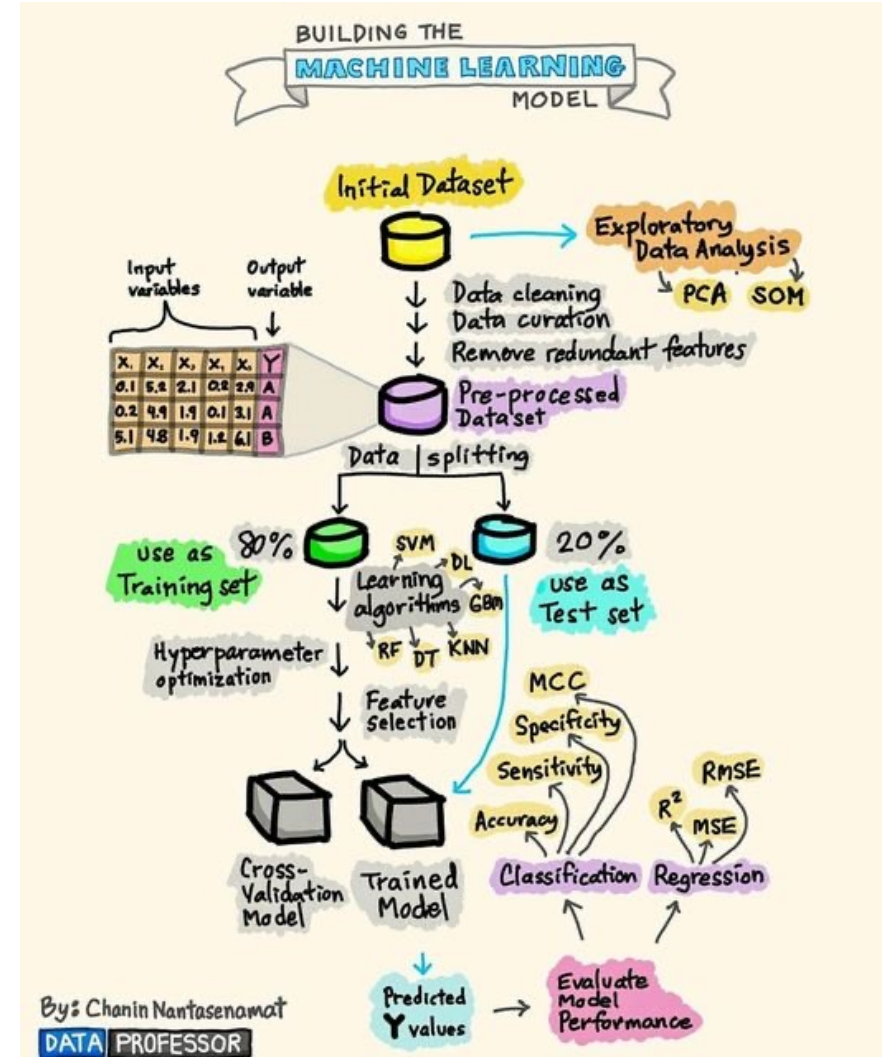 BUILDING THE
MACHINE LEARNING
MODEL
Initial Dataset
Exploratory
Data Analysis
PCA SOM
Input
variables
Output
variable
Data cleaning
Data curation
Remove redundant features
X₁ X₂ X₃ X₄ X₅ Y
0.1 5.2 2.1 0.2 2.9 A
0.2 4.9 1.9 0.1 3.1 A
5.1 4.8 1.9 1.2 6.1 B
Pre-processed
Dataset
Data splitting
80%
use as
Training set
20%
use as
Test set
Learning
algorithms
SVM
DL
GBM
KNN
DT
RF
Hyperparameter
optimization
Feature
selection
Cross-
Validation
Model
Trained
Model
MCC
Specificity
Sensitivity
Accuracy
RMSE
R²
MSE
Classification
Regression
Predicted
Y values
Evaluate
Model
Performance
By: Chanin Nantasenamat
DATA PROFESSOR